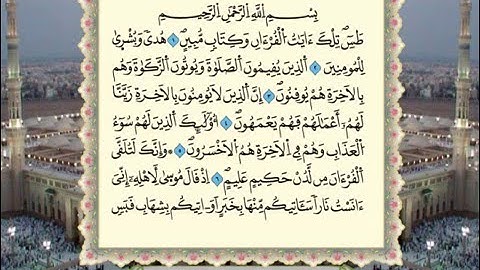 بِسْمِ اللَّهِ الرَّحْمَٰنِ الرَّحِيمِ
طَسٓ تِلْكَ ءَايَٰتُ الْقُرْءَانِ وَكِتَابٖ مُّبِينٍ ١ هُدىٗ وَبُشْرَىٰ
لِلْمُومِنِينَ ٢ اَلذِينَ يُقِيمُونَ اَلصَّلَوٰةَ وَيُوتُونَ اَلزَّكَوٰةَ وَهُم
بِالَاخِرَةِ هُمْ يُوقِنُونَ ٣ إِنَّ اَلذِينَ لَا يُومِنُونَ بِالَاخِرَةِ زَيَّنَّا
لَهُمُۥٓ أَعْمَٰلَهُمْ فَهُمْ يَعْمَهُونَ ٤ أُوْلَٰٓئِكَ اَلذِينَ لَهُمْ سُوٓءُ
اُلْعَذَابِ وَهُمْ فِي اِلَاخِرَةِ هُمُ اُلَاخْسَرُونَ ٥ وَإِنَّكَ لَتُلَقَّى
اَلْقُرْءَانَ مِن لَّدُنْ حَكِيمٍ عَلِيمٍ ٦ اِذْ قَالَ مُوسَىٰ لِأَهْلِهِۦٓ إِنِّيَ
ءَانَسْتُ نَاراٗ سَـَٔاتِيكُم مِّنْهَا بِخَبَرٍ اَوَ اٰتِيكُم بِشِهَابِ قَبَسٖ